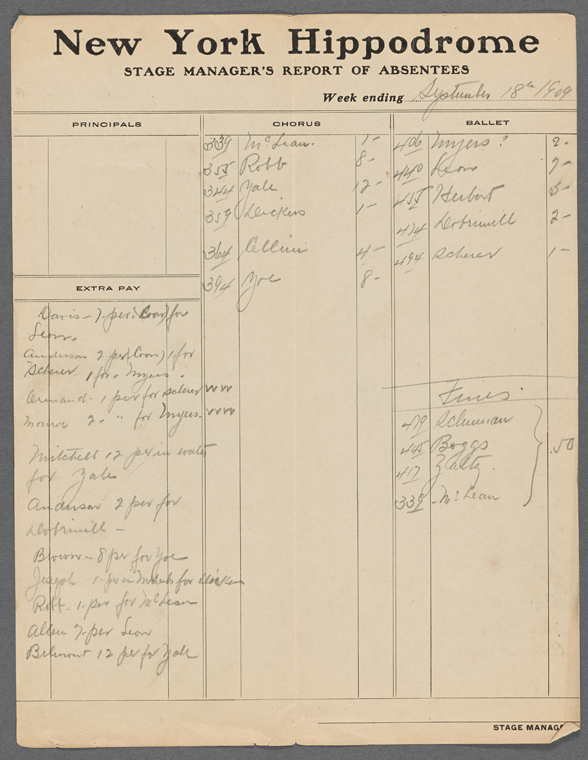 New York Hippodrome
STAGE MANAGER'S REPORT OF ABSENTEES
Week ending September 18th 1909
PRINCIPALS
CHORUS
339 McLean. 1-
355 Robb 8-
344 Yale 12-
359 Dickens 1-
364 Cellini 4-
394 Yoe 8-
BALLET
406 Myers? 2-
440 Leon 7-
455 Herbert 5-
474 Dobrimell 2-
494 Scherer 1-
EXTRA PAY
Davis - 7 per. for
Leon.
Anderson 2 per 1 for
Scherer 1 for Myers.
Armand - 1 per for Scherer
Monroe 2 - " for Myers.
Mitchell 12 per in water
for Yale
Anderson 2 per for
Dobrimell -
Brown - 8 per for Yoe
Joseph 1 - per in for Dickens
Robb - 1 - per for McLean
Allen 7 per Leon
Belmont 12 per for Yale
Fines.
479 Schuman
445 Boggs
417 Zaltz.
339 - McLean
.50
STAGE MANAG